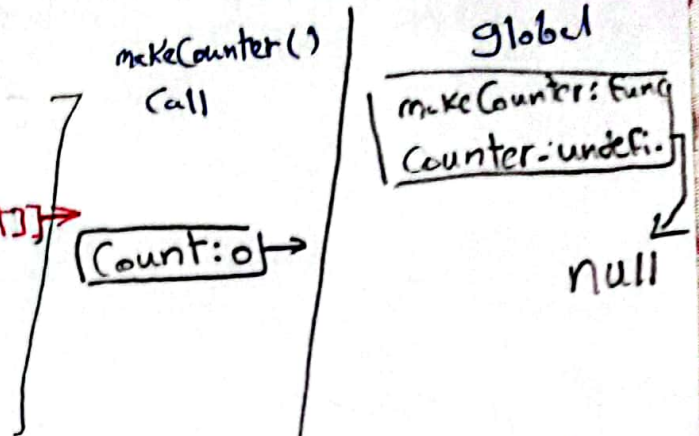 makeCounter()
Call
]]
Count:0
global
makeCounter: Func
Counter:undefi.
null